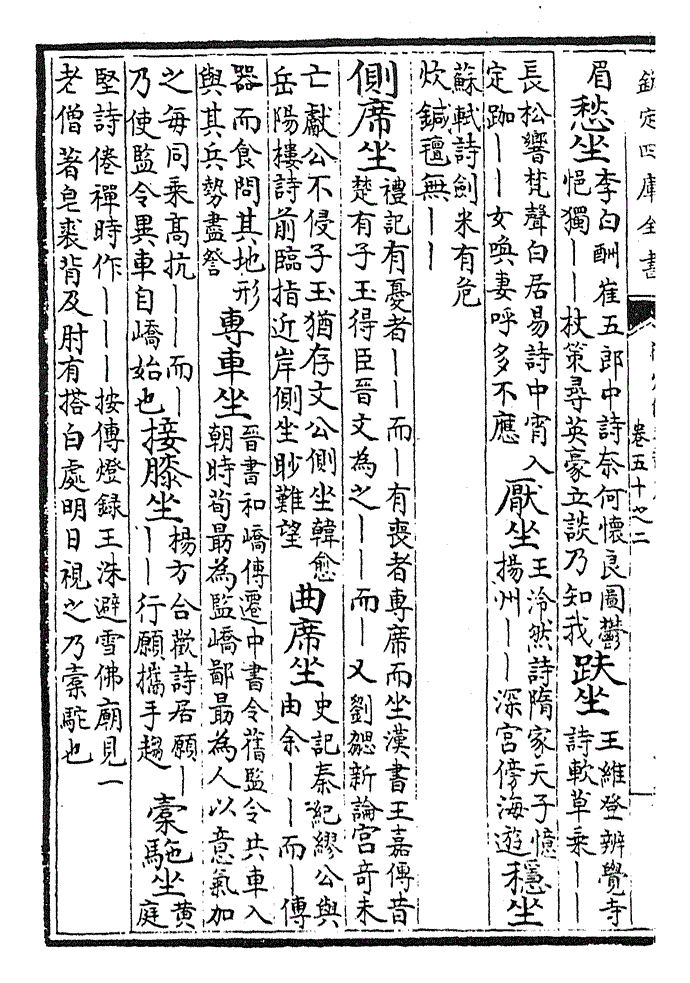 欽定四庫全書
卷五十之二
眉
愁坐
李白酬崔五郎中詩奈何懷良圖鬱
悒獨丨丨杖策尋英豪立談乃知我
趺坐
王維登辨覺寺
詩軟草乘丨丨
長松響梵聲白居易詩中宵入
定跏丨丨女喚妻呼多不應
厭坐
王泠然詩隋家天子憶
揚州丨丨深宮傍海遊
穩坐
蘇軾詩劍米有危
炊鍼氊無丨丨
側席坐
禮記有憂者丨丨而丨有喪者專席而坐漢書王嘉傳昔
楚有子玉得臣晉文為之丨丨而丨又劉勰新論宮奇未
亡獻公不侵子玉猶存文公側坐韓愈
岳陽樓詩前臨指近岸側坐眇難望
曲席坐
史記秦紀繆公與
由余丨丨而丨傳
器而食問其地形
與其兵勢盡詧
專車坐
晉書和嶠傳遷中書令舊監令共車入
朝時荀勗為監嶠鄙勗為人以意氣加
之每同乘高抗丨丨而丨
乃使監令異車自嶠始也
接膝坐
楊方合歡詩居願丨
丨丨行願攜手趨
槖駞坐
黃
庭
堅詩倦禪時作丨丨丨按傳燈録王洙避雪佛廟見一
老僧著皂裘背及肘有搭白處明日視之乃槖駝也